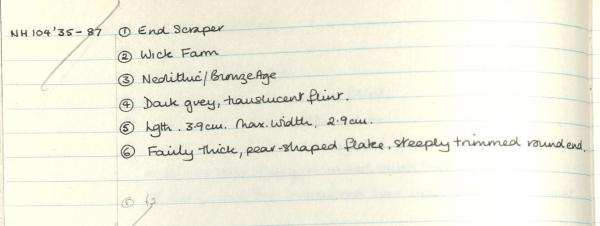 NH 104'35-87 ① End Scraper
② Wick Farm
③ Neolithic/Bronze Age
④ Dark grey, translucent flint.
⑤ lgth. 3.9cm. Max. width. 2.9cm.
⑥ Fairly thick, pear-shaped flake, steeply trimmed round end.
⑧